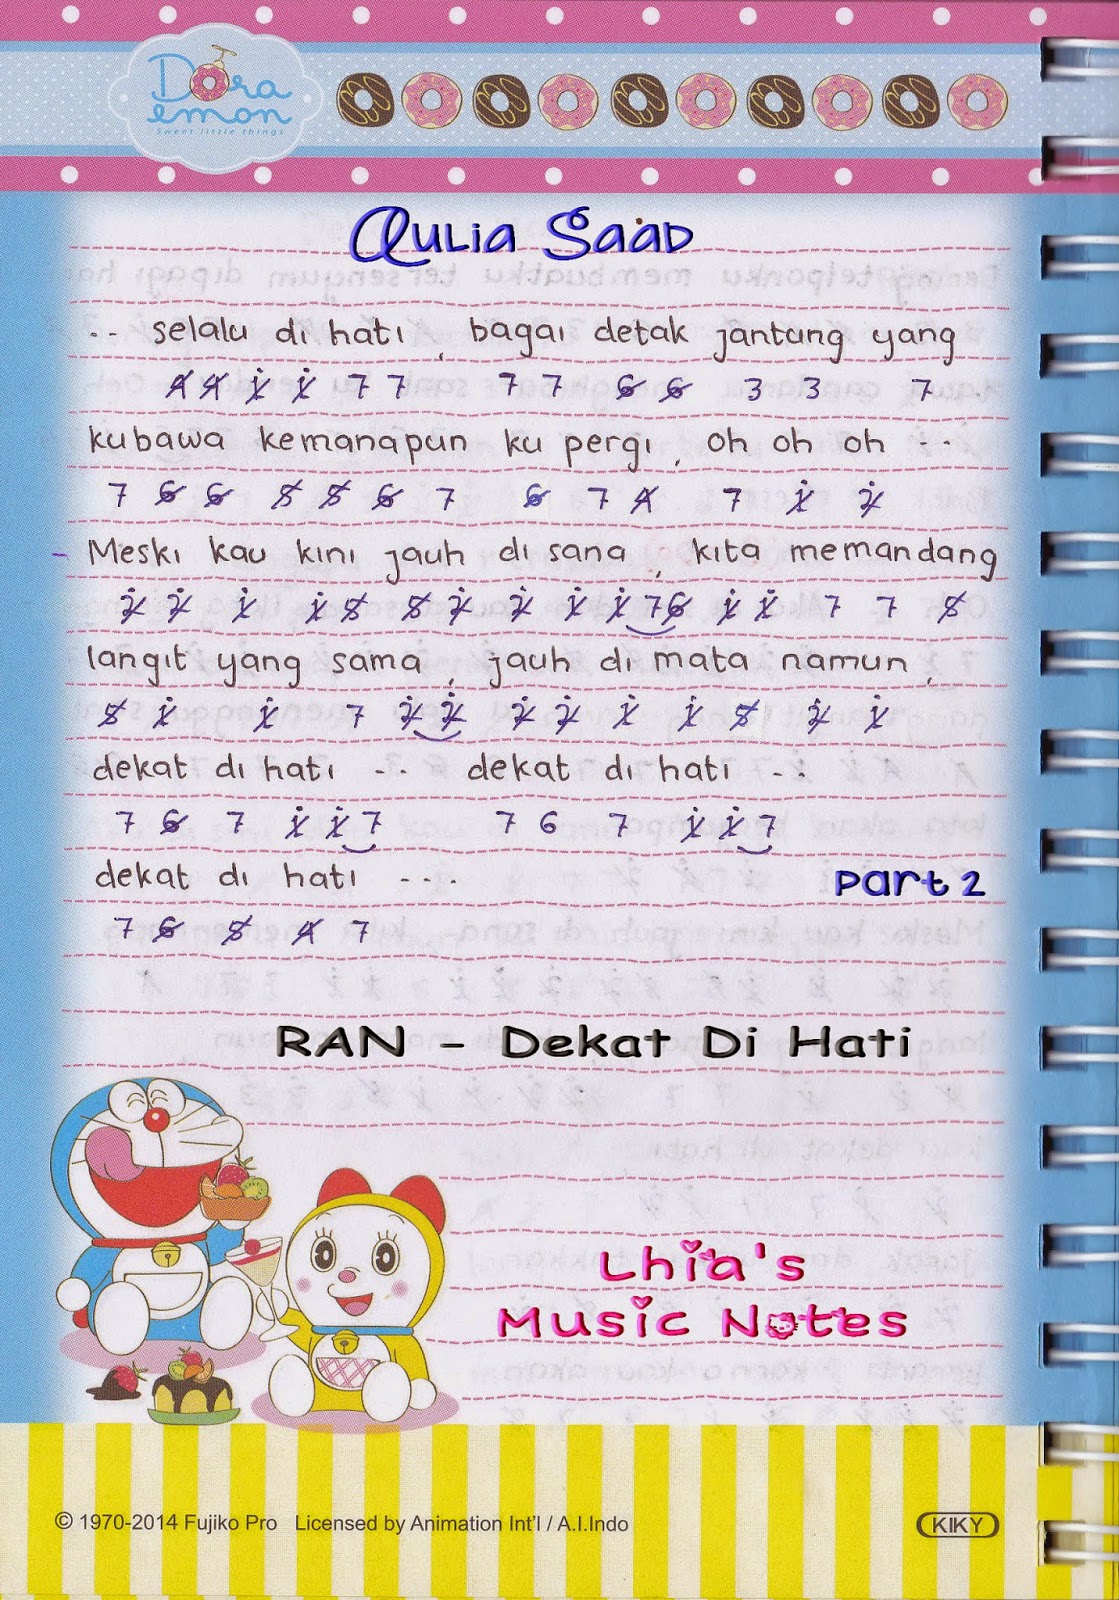 Doraemon
Sweet little things
Aulia Saad
.. selalu di hati, bagai detak jantung yang
4̸ 4̸ 1̸̇ 1̸̇ 7 7 7 7 6̸ 6̸ 3 3 7
kubawa kemanapun ku pergi, oh oh oh ..
7 6̸ 6̸ 5̸ 5̸ 6̸ 7 6̸ 7 4̸ 7 1̸̇ 2̸̇
- Meski kau kini jauh di sana, kita memandang
2̸̇ 2̸̇ 1̸̇ 1̸̇ 5̸ 5̸ 2̸̇ 2̸̇ 1̸̇ 1̸̇ 7 6̸ 1̸̇ 1̸̇ 7 7 5̸
langit yang sama, jauh di mata namun,
5̸ 1̸̇ 1̸̇ 7 2̸̇ 2̸̇ 2̸̇ 2̸̇ 1̸̇ 1̸̇ 5̸ 2̸̇ 1̸̇
dekat di hati ... dekat di hati ...
7 6̸ 7 1̸̇ 1̸̇ 7 7 6 7 1̸̇ 1̸̇ 7
dekat di hati ....
Part 2
7 6̸ 5̸ 4̸ 7
RAN - Dekat Di Hati
Lhia's
Music Notes
© 1970-2014 Fujiko Pro Licensed by Animation Int'l / A.I.Indo
KIKY